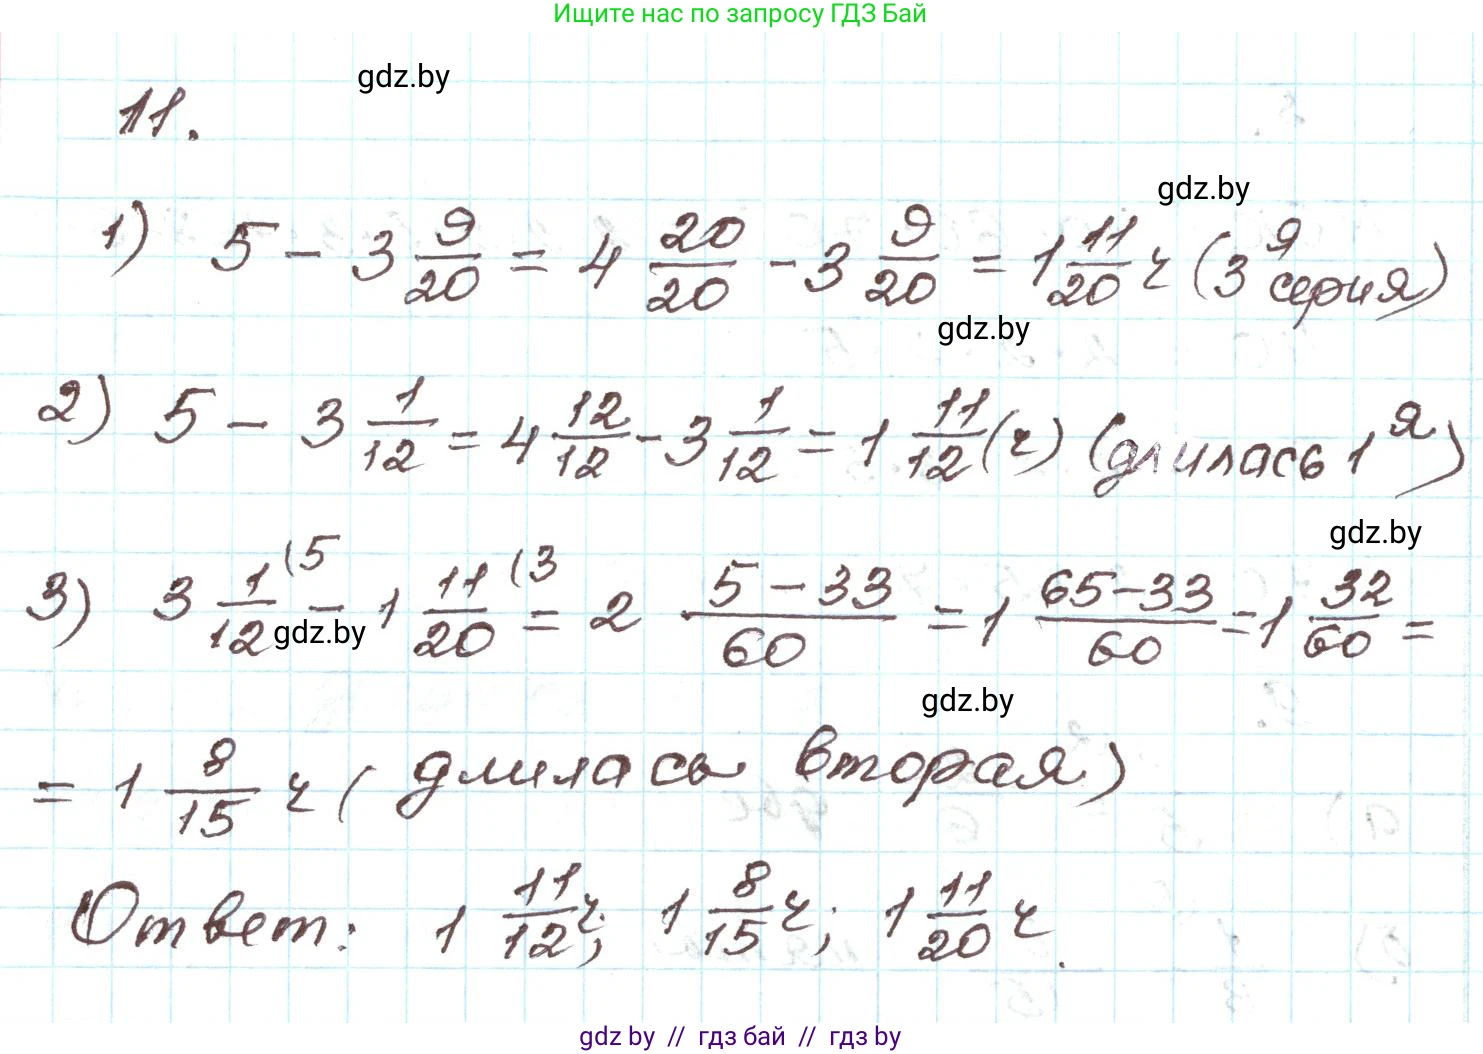 Ищите нас по запросу ГДЗ Бай
gdz.by
11.
gdz.by
1) 5 - 3 9/20 = 4 20/20 - 3 9/20 = 1 11/20 ч (3я серия)
gdz.by
2) 5 - 3 1/12 = 4 12/12 - 3 1/12 = 1 11/12 (ч) (длилась 1я)
gdz.by
3) 3 1/12 (5 - 1 11/20 (3 = 2 5-33/60 = 1 65-33/60 = 1 32/60 =
gdz.by
gdz.by
= 1 8/15 ч (длилась вторая)
Ответ: 1 11/12 ч; 1 8/15 ч; 1 11/20 ч.
gdz by // гдз бай // гдз by